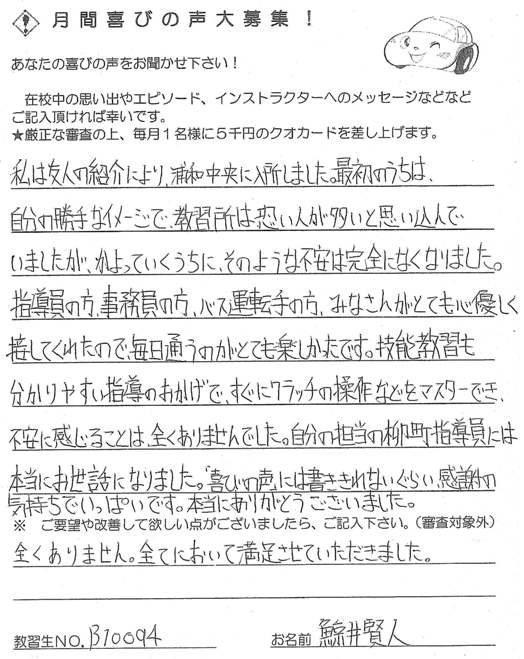 月間喜びの声大募集！
あなたの喜びの声をお聞かせ下さい！
在校中の思い出やエピソード、インストラクターへのメッセージなどなど
ご記入頂ければ幸いです。
★厳正な審査の上、毎月１名様に５千円のクオカードを差し上げます。
私は友人の紹介により、浦和中央に入所しました。最初のうちは、
自分の勝手なイメージで、教習所は恐い人が多いと思い込んで
いましたが、かよっていくうちに、そのような不安は完全になくなりました。
指導員の方、事務員の方、バス運転手の方、みなさんがとても心優しく
接してくれたので、毎日通うのがとても楽しかったです。技能教習も
分かりやすい指導のおかげで、すぐにクラッチの操作などをマスターでき、
不安に感じることは、全くありませんでした。自分の担当の柳町指導員には
本当にお世話になりました。「喜びの声」には書ききれないぐらい、感謝の
気持ちでいっぱいです。本当にありがとうございました。
※　ご要望や改善して欲しい点がございましたら、ご記入下さい。（審査対象外）
全くありません。全てにおいて満足させていただきました。
教習生NO. B10094　お名前 鯨井賢人